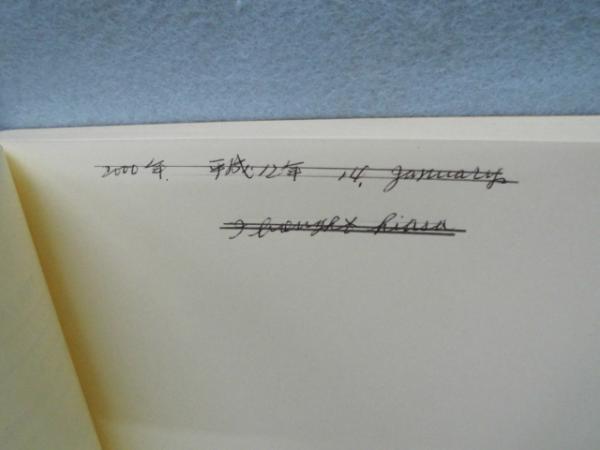 2000年. 平成12年 14. January.
I bought